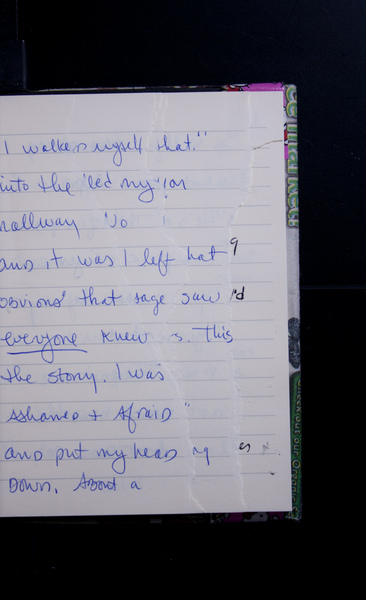 I walked myself that."
into the led my
hallway
and it was I left hat 9
obvious that sage saw
everyone knew This
the story. I was
ashamed + Afraid
and put my head
Down. About a